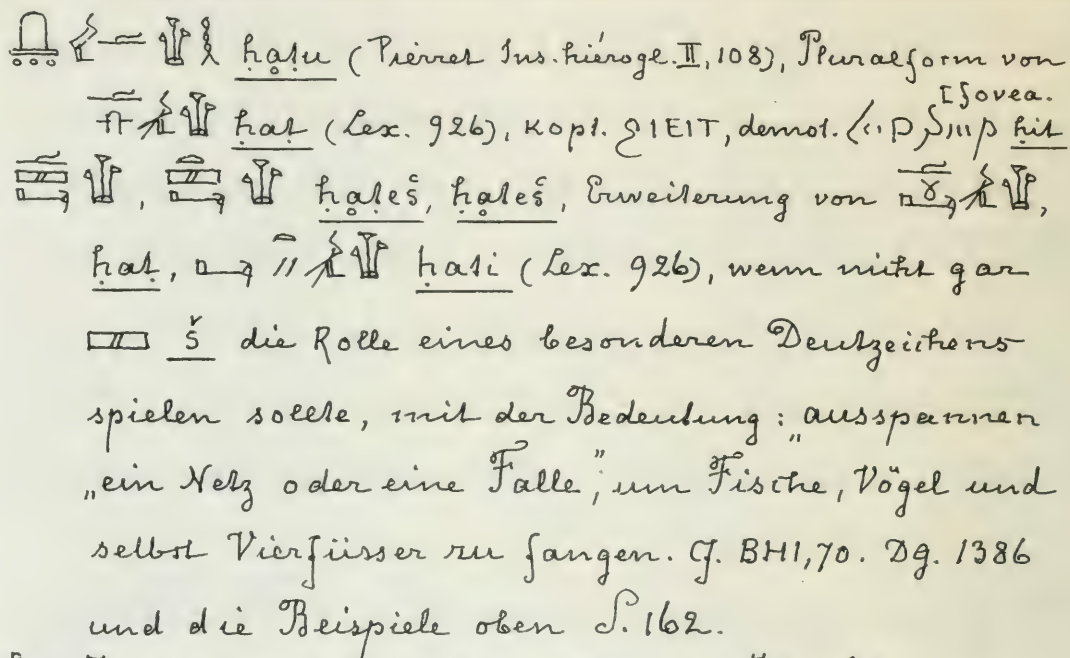 ḥạṭu (Pierret Ins. hiérogl. II, 108), Pluralform von
[fovea.
ḥaṭ (Lex. 926), kopt. ϨΙΕΙΤ, demot. hit
ḥạṭeš, ḥạteš, Erweiterung von
ḥaṭ, ḥati (Lex. 926), wenn nicht gar
š die Rolle eines besonderen Deutzeichens
spielen sollte, mit der Bedeutung: „ausspannen
„ein Netz oder eine Falle”, um Fische, Vögel und
selbst Vierfüsser zu fangen. Cf. BHI, 70. Dg. 1386
und die Beispiele oben S. 162.